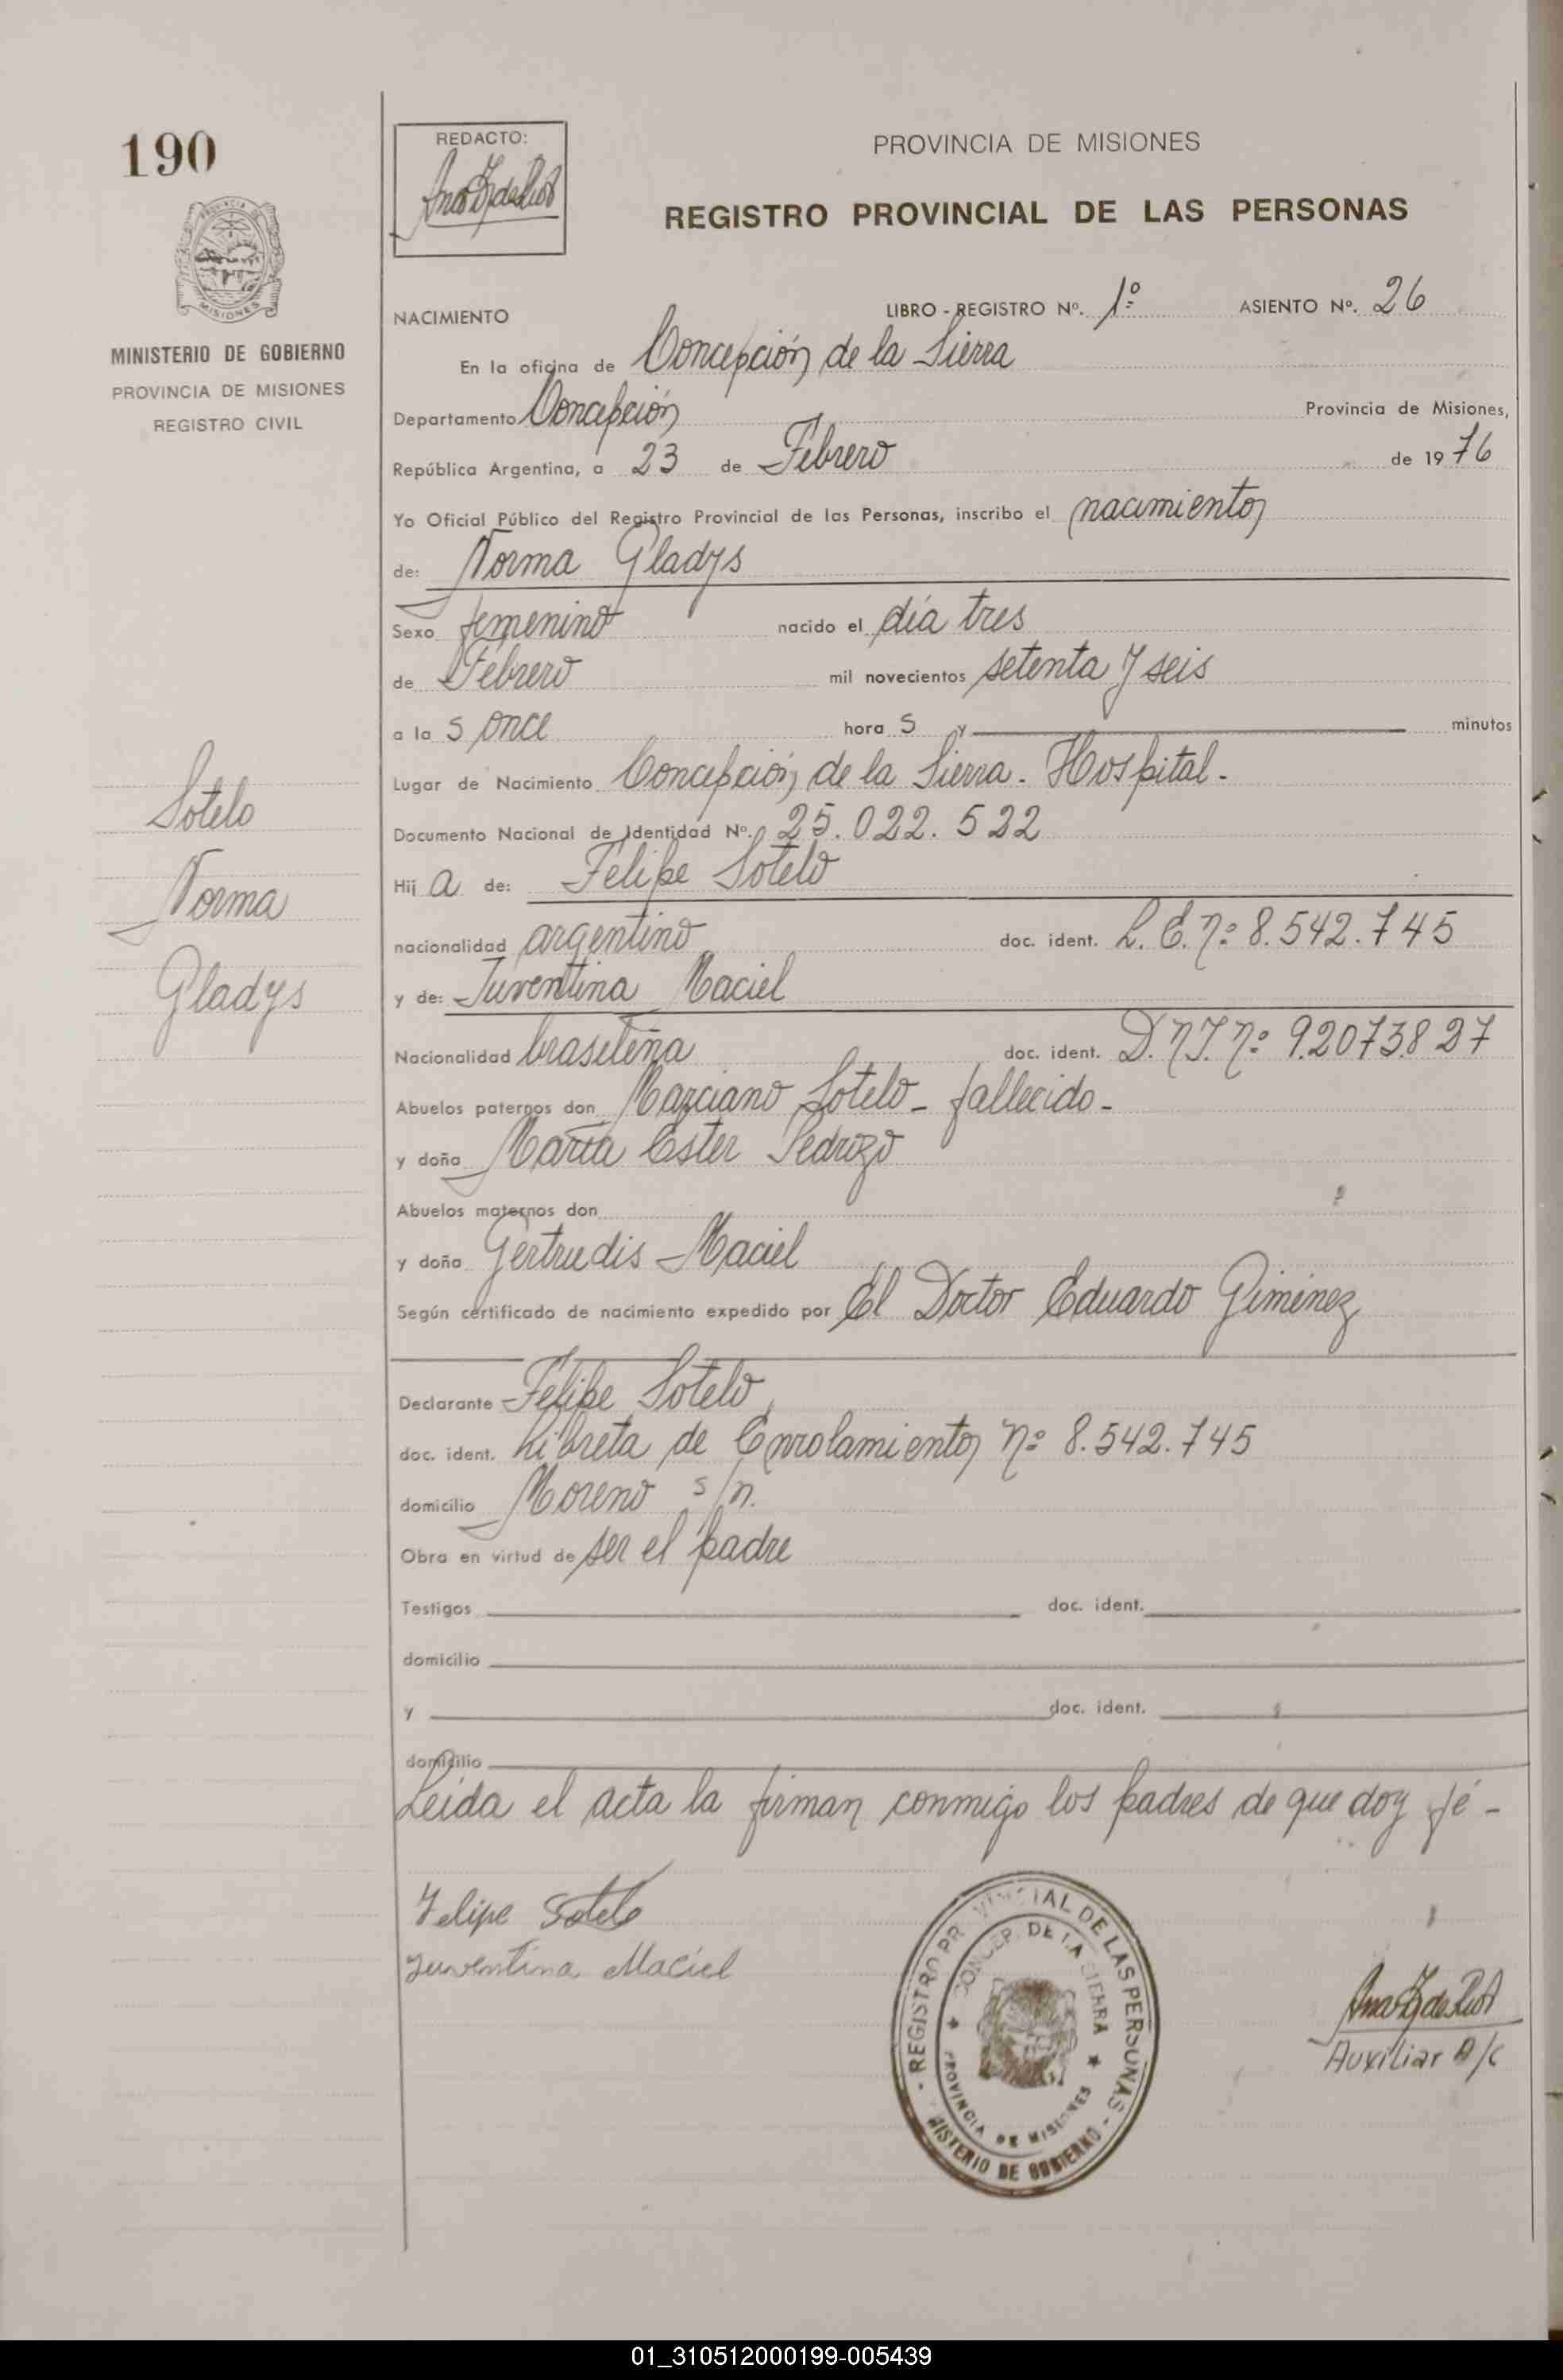 190
REDACTO:
PROVINCIA DE MISIONES
REGISTRO PROVINCIAL DE LAS PERSONAS
MISIONES
MINISTERIO DE GOBIERNO
PROVINCIA DE MISIONES
REGISTRO CIVIL
NACIMIENTO LIBRO - REGISTRO Nº. 1º ASIENTO Nº. 26
En la oficina de Concepción de la Sierra
Departamento Concepción Provincia de Misiones,
República Argentina, a 23 de Febrero de 1976
Yo Oficial Público del Registro Provincial de las Personas, inscribo el nacimiento
de: Norma Gladys
Sexo femenino nacido el día tres
de Febrero mil novecientos setenta y seis
a la s once hora s y minutos
Lugar de Nacimiento Concepción de la Sierra. Hospital.
Documento Nacional de Identidad Nº. 25.022.522
Hij a de: Felipe Sotelo
nacionalidad argentino doc. ident. L.E.nº 8.542.745
y de: Juventina Maciel
Nacionalidad brasileña doc. ident. D.N.I. nº 9.2073.827
Abuelos paternos don Marciano Sotelo - fallecido -
y doña María Ester Pedrozo
Abuelos maternos don
y doña Gertrudis Maciel
Según certificado de nacimiento expedido por El Doctor Eduardo Giménez
Declarante Felipe Sotelo
doc. ident. Libreta de Enrolamiento nº 8.542.745
domicilio Moreno s/n.
Obra en virtud de ser el padre
Testigos doc. ident.
domicilio
y doc. ident.
domicilio
Leida el acta la firman conmigo los padres de que doy fé -
Sotelo
Norma
Gladys
Felipe Sotelo
Juventina Maciel
- REGISTRO PROVINCIAL DE LAS PERSONAS -
MINISTERIO DE GOBIERNO
CONCEP. DE LA SIERRA
PROVINCIA DE MISIONES
Auxiliar A/C
01_310512000199-005439